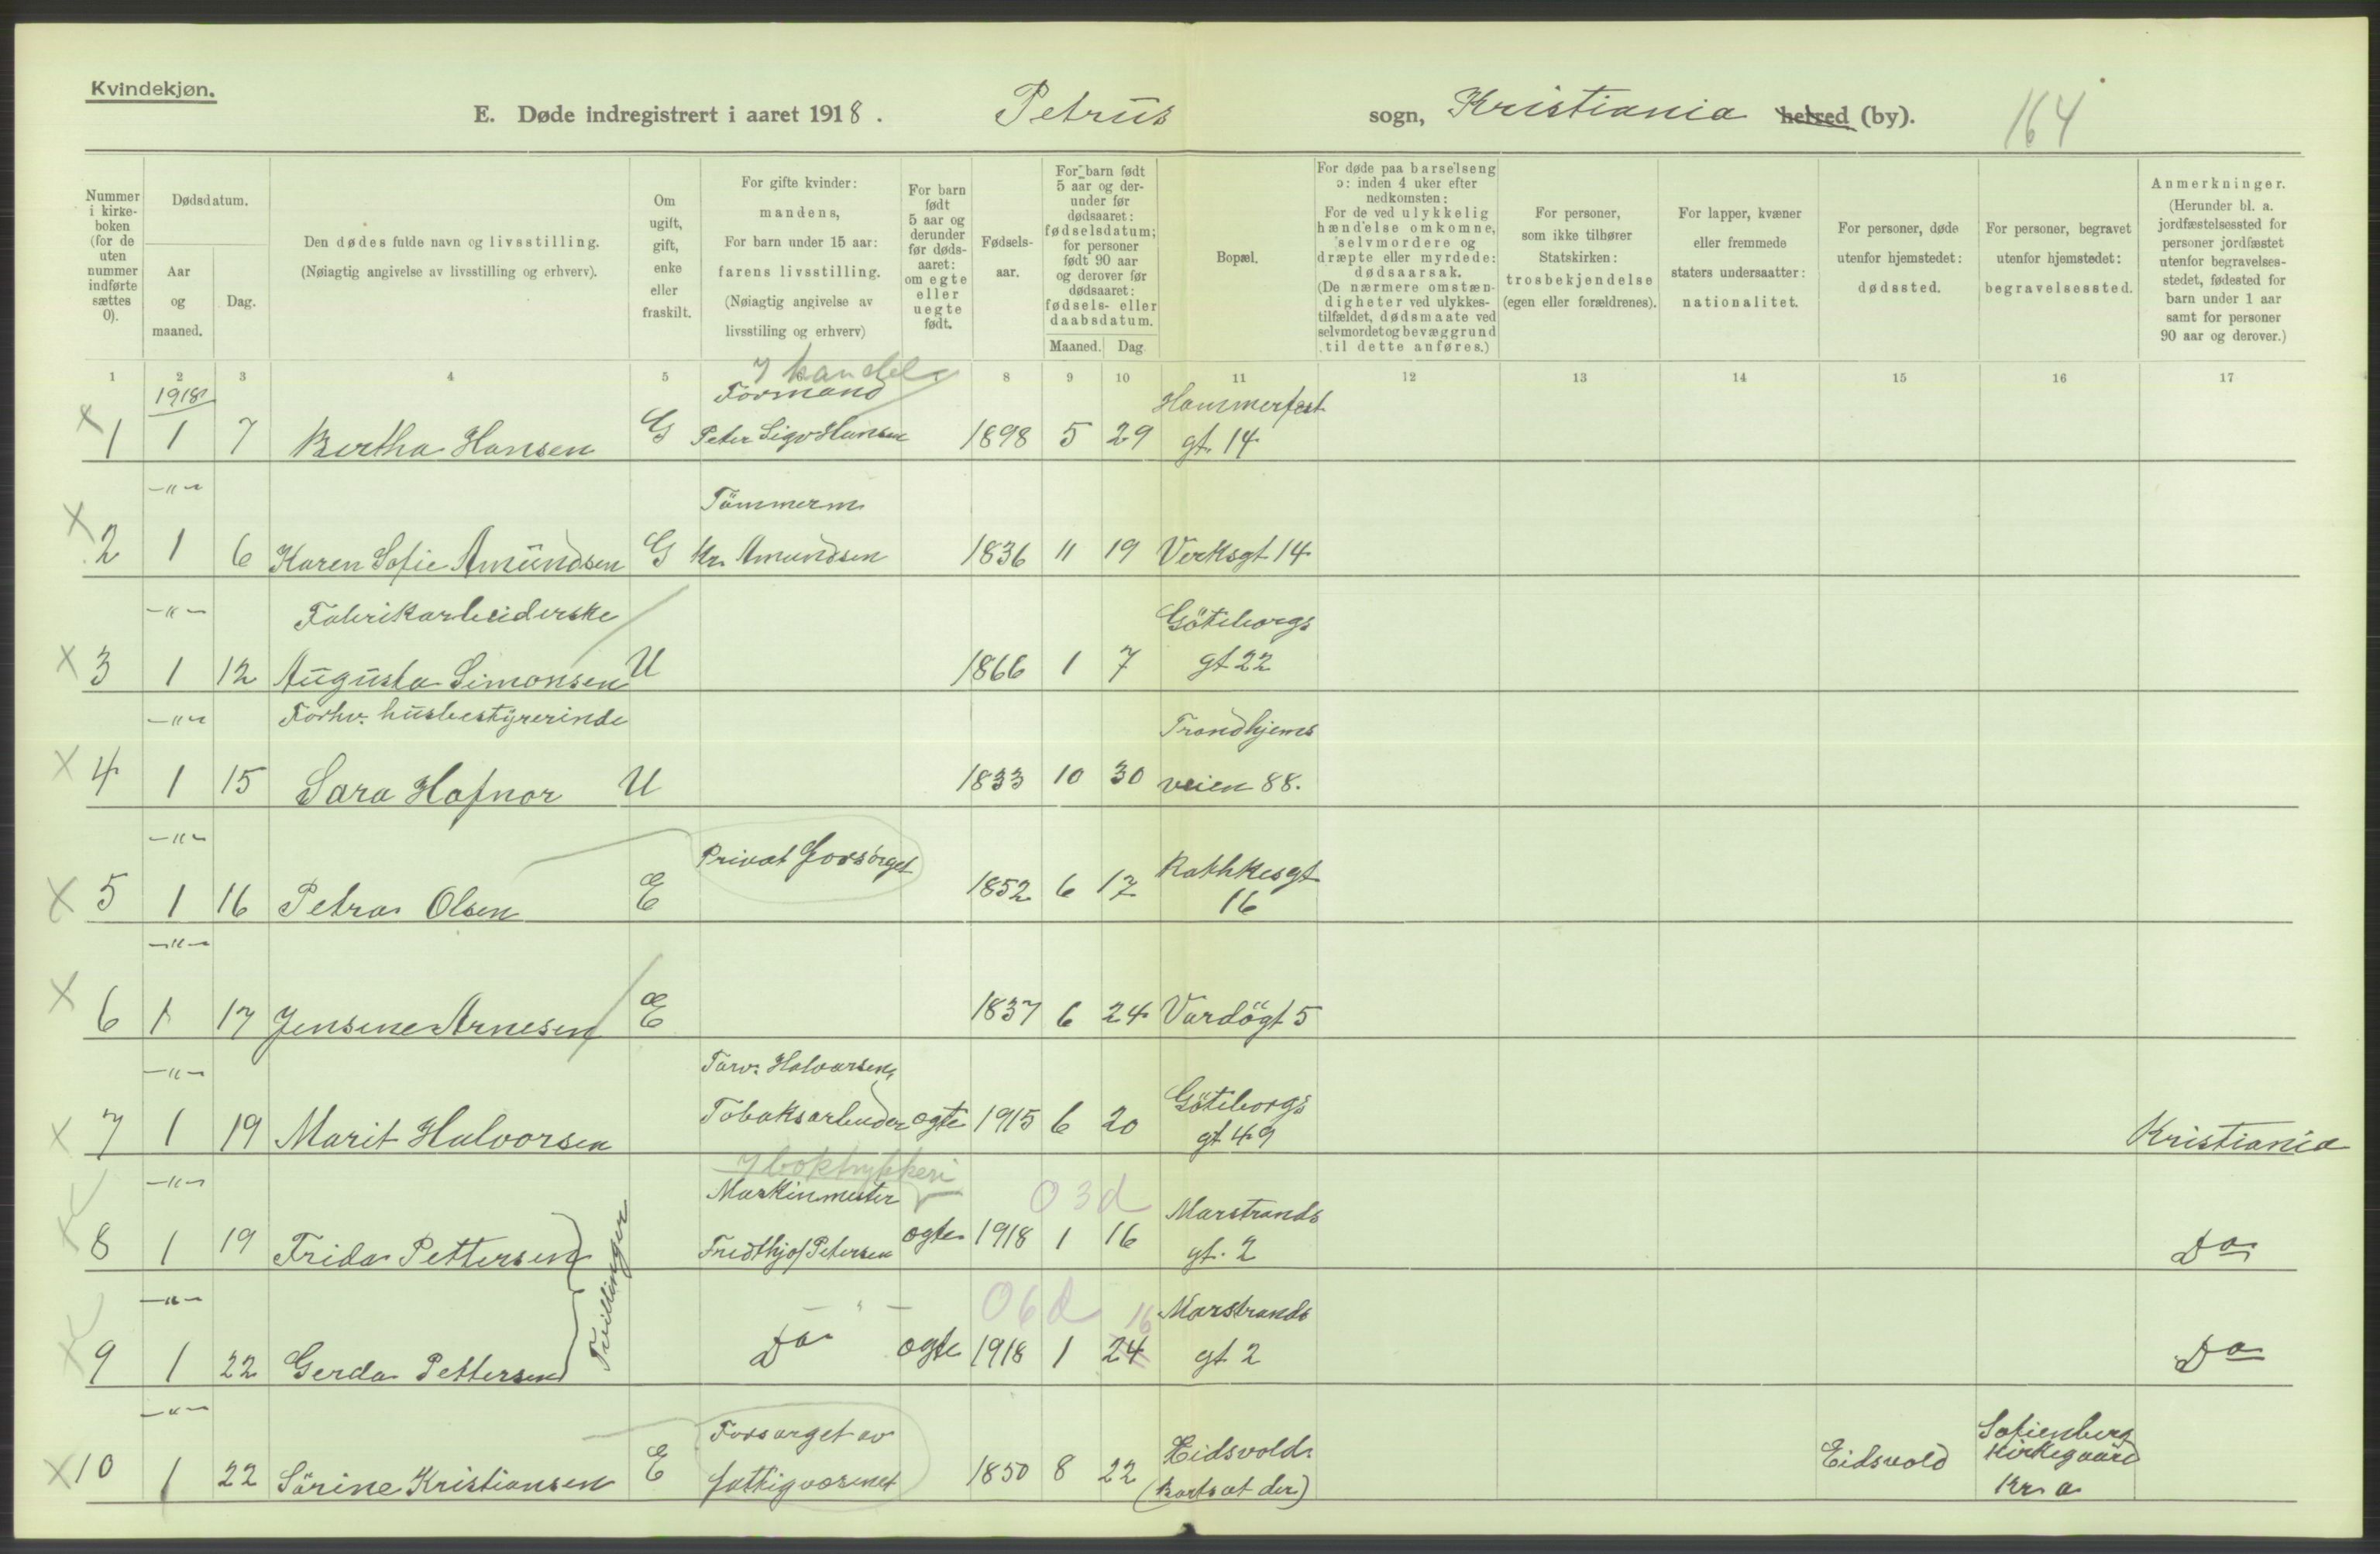 Kvindekjøn.
E. Døde indregistrert i aaret 1918. Petrus sogn, Kristiania herred (by). 164
Nummer i kirke-boken (for de uten nummer indførte sættes 0).
Dødsdatum.
Aar og maaned.
Dag.
Den dødes fulde navn og livsstilling.
(Nøiagtig angivelse av livsstilling og erhverv).
Om ugift, gift, enke eller fraskilt.
For gifte kvinder: mandens,
For barn under 15 aar: farens livsstilling.
(Nøiagtig angivelse av livsstiling og erhverv)
For barn født 5 aar og derunder før døds-aaret: om egte eller uegte født.
Fødsels-aar.
For barn født 5 aar og der-under før dødsaaret: fødselsdatum; for personer født 90 aar og derover før dødsaaret: fødsels- eller daabsdatum.
Maaned. Dag.
Bopæl.
For døde paa barselseng ɔ: inden 4 uker efter nedkomsten:
For de ved ulykkelig hændelse omkomne, selvmordere og dræpte eller myrdede: dødsaarsak.
(De nærmere omstæn-digheter ved ulykkes-tilfældet, dødsmaate ved selvmordet og bevæggrund til dette anføres.)
For personer, som ikke tilhører Statskirken: trosbekjendelse (egen eller forældrenes).
For lapper, kvæner eller fremmede staters undersaatter: nationalitet.
For personer, døde utenfor hjemstedet: dødssted.
For personer, begravet utenfor hjemstedet: begravelsessted.
Anmerkninger.
(Herunder bl. a. jordfæstelsessted for personer jordfæstet utenfor begravelses-stedet, fødested for barn under 1 aar samt for personer 90 aar og derover.)
1 2 3 4 5 8 9 10 11 12 13 14 15 16 17
I handel
1918 Formand Hammerfest
X 1 1 7 Bertha Hansen G Peter Sigv Hansen 1898 5 29 gt. 14
-"- Tömmerm
X 2 1 6 Karen Sofie Amundsen G Kr. Amundsen 1836 11 19 Verksgt 14
-"- Fabrikarbeiderske Göteborgs
X 3 1 12 Augusta Simonsen U 1866 1 7 gt 22
-"- Forhv. husbestyrerinde Trondhjems
X 4 1 15 Sara Hafnor U 1833 10 30 veien 88.
-"- Privat forsörget Rathkesgt
X 5 1 16 Petra Olsen E 1852 6 17 16
-"-
X 6 1 17 Jensine Arnesen E 1837 6 24 Vardögt 5
-"- Torv. Halvorsen, Göteborgs
X 7 1 19 Marit Halvorsen Tobaksarbeider egte 1915 6 20 gt 49 Kristiania
I boktrykkeri
-"- Maskinmester 03d Marstrands
X 8 1 19 Frida Pettersen Fridthjof Petersen egte 1918 1 16 gt. 2 Do
Tvillinger
-"- - " - 06d 16 Marstrands
X 9 1 22 Gerda Pettersen Do egte 1918 1 24 gt 2 Do
-"- Forsørget av Eidsvold. Sofienberg
X 10 1 22 Sörine Kristiansen E fattigvæsenet 1850 8 22 (Bortsat der) Eidsvold Kirkegaard
Kr.a